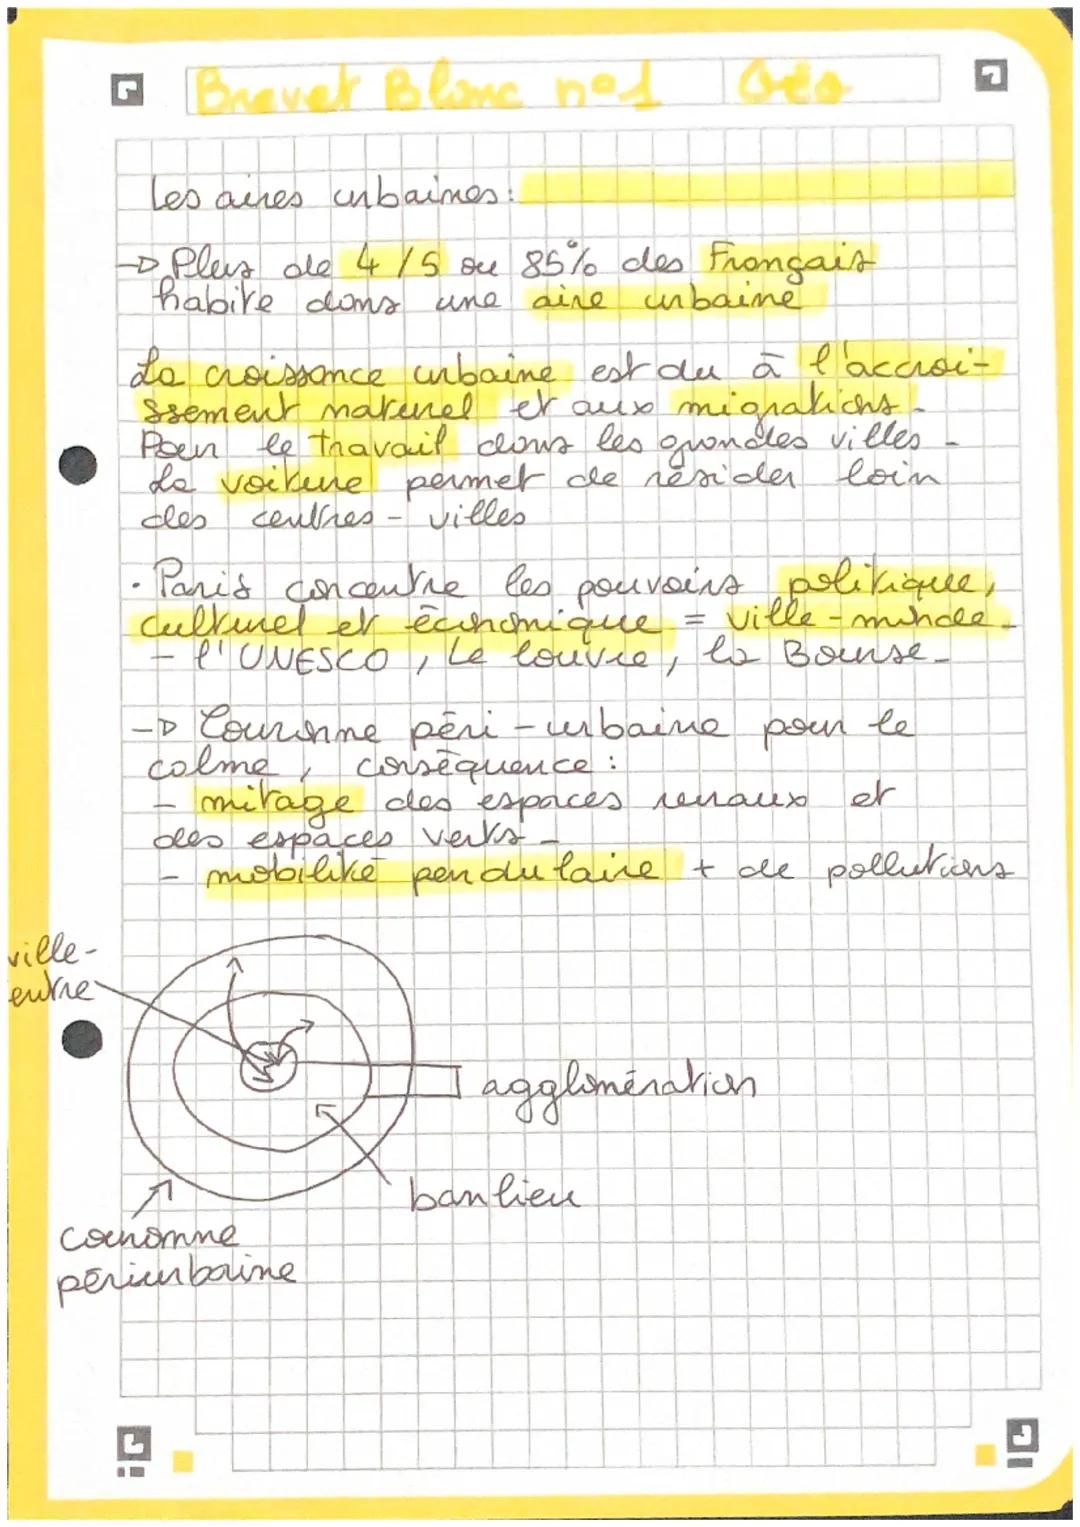 Brevet Blanc n°1 Géo
Les aires urbaines:
→ Plus de 4/5 ou 85% des Français
habite dans une aire urbaine
La croissance urbaine est du à l'accroi-
ssement naturel et aux migrations.
Pour le travail dans les grandes villes.
La voiture permet de résider loin
des centres-villes
· Paris concentre les pouvoirs politique,
culturel et économique = ville-monde.
- l'UNESCO, Le louvre, la Bourse.
→ Couronne péri-urbaine pour le
calme, conséquence:
- mitage des espaces ruraux et
des espaces verts.
- mobilité pendulaire + de pollutions
ville-
entre
agglomération
banlieu
couronne
périurbaine